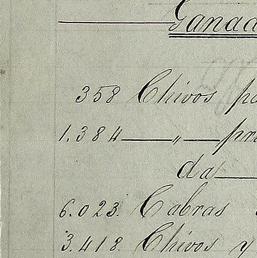 Ganad
358 Chivos pa
1.384 — „ — pr
da
6.023. Cabras
3.418. Chivos y